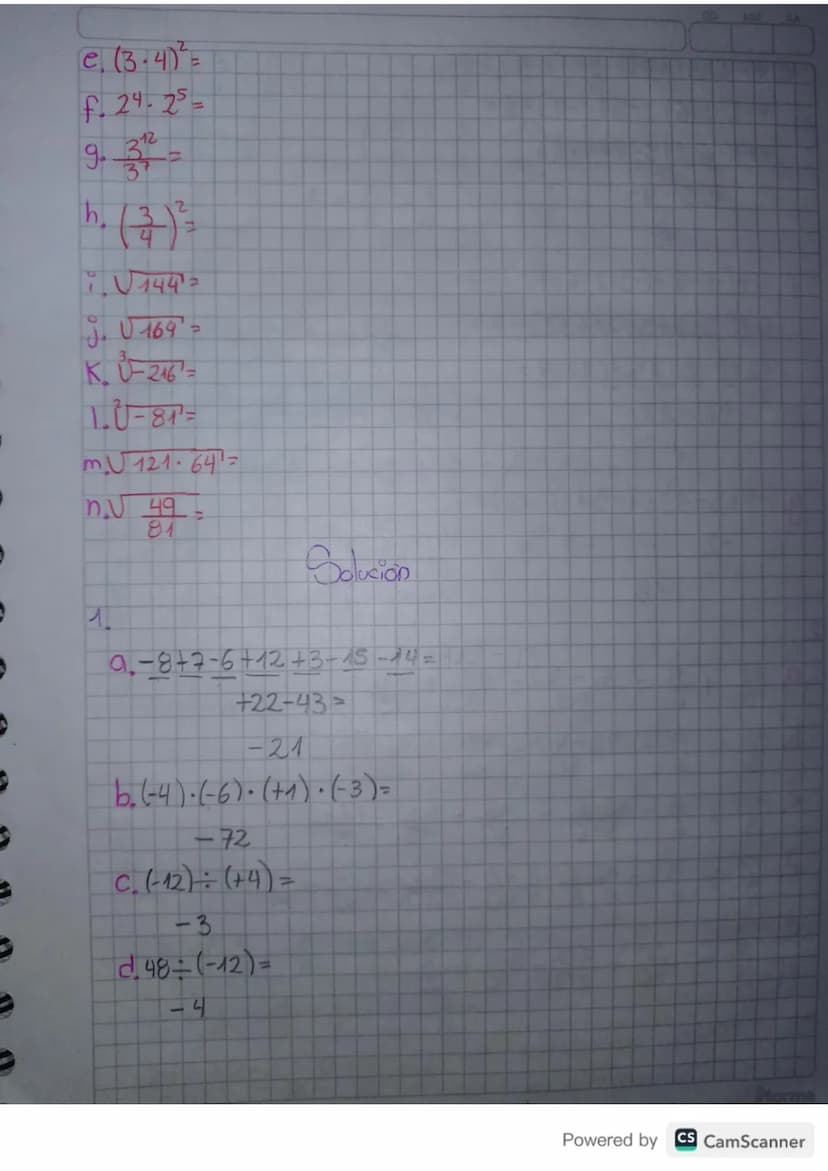 e. (3·4)²=
f. 2⁴·2⁵=
g. 3¹²/3⁷=
h. (3/4)²=
i. √144=
j. √169=
K. ³√-216=
l. ²√-81=
m. √121·64=
n. √49/81=
Solución
1.
a. -8+7-6+12+3-15-14=
+22-43=
-21
b. (-4)·(-6)·(+1)·(-3)=
-72
c. (-12)÷(+4)=
-3
d. 48÷(-12)=
-4
Norma
Powered by CS CamScanner